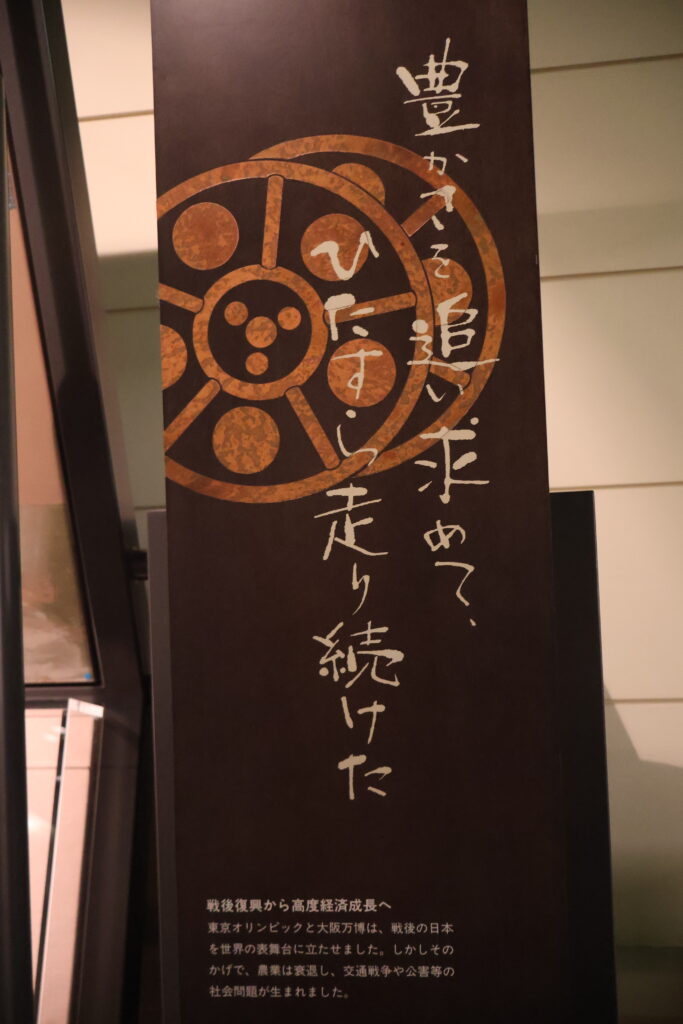 豊かさを追い求めて、
ひたすら走り続けた
戦後復興から高度経済成長へ
東京オリンピックと大阪万博は、戦後の日本
を世界の表舞台に立たせました。しかしその
かげで、農業は衰退し、交通戦争や公害等の
社会問題が生まれました。